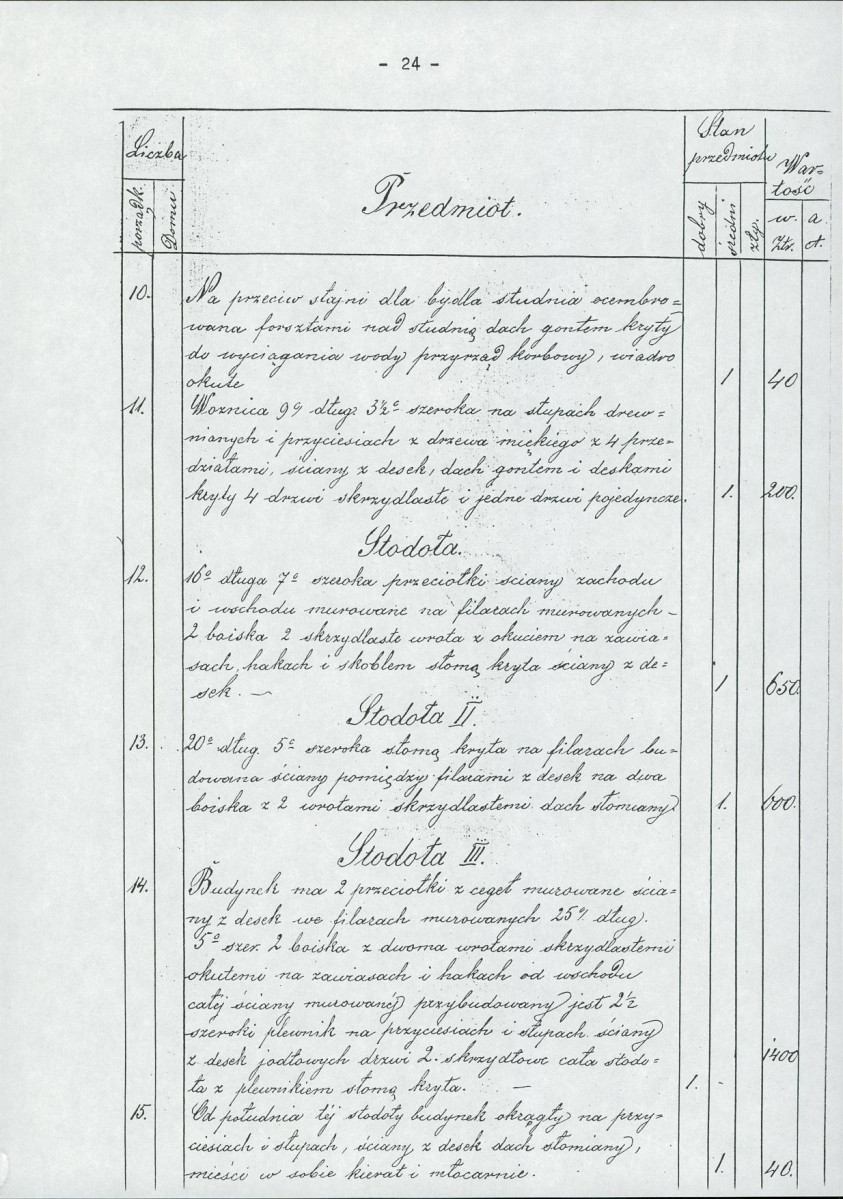 - 24 -
Liczba
Stan
przedmiotu
War-
tość
porządk.
Domu
Przedmiot.
dobry
średni
zły.
w. a
Ztr. ct.
10. Na przeciw stajni dla bydła studnia ocembro=
wana forsztami nad studnią dach gontem kryty
do wyciągania wody przyrząd korbowy, wiadro
okute 1 40
11. Woznica 9° dług. 3½° szeroka na słupach drew-
nianych i przyciesiach z drzewa miękiego z 4 prze-
działami, ściany z desek, dach gontem i deskami
kryty 4 drzwi skrzydlaste i jedne drzwi pojedyncze. 1. 200.
Stodoła.
12. 16° długa 7° szeroka przeciołki sciany zachodu
i wschodu murowane na filarach murowanych -
2 boiska 2 skrzydlaste wrota z okuciem na zawia-
sach, hakach i skoblem słomą kryta ściany z de-
sek. — 1 650
Stodoła II.
13. 20° dług. 5° szeroka słomą kryta na filarach bu-
dowana ściany pomiędzy filarami z desek na dwa
boiska z 2 wrotami skrzydlastemi dach słomiany 1. 600.
Stodoła III.
14. Budynek ma 2 przeciołki z cegeł murowane ścia-
ny z desek we filarach murowanych 25° dług.
5° szer. 2 boiska z dwoma wrotami skrzydlastemi
okutemi na zawiasach i hakach od wschodu
całéj ściany murowanéj przybudowany jest 2½
szeroki plewnik na przyciesiach i słupach ściany
z desek jodłowych drzwi 2. skrzydłowe cała stodo- 1400
ła z plewnikiem słomą kryta. — 1. -
15. Od południa téj stodoły budynek okrągły na przy-
ciesiach i słupach, ściany z desek dach słomiany,
mieści w sobie kierat i młocarnie. 1. 40.